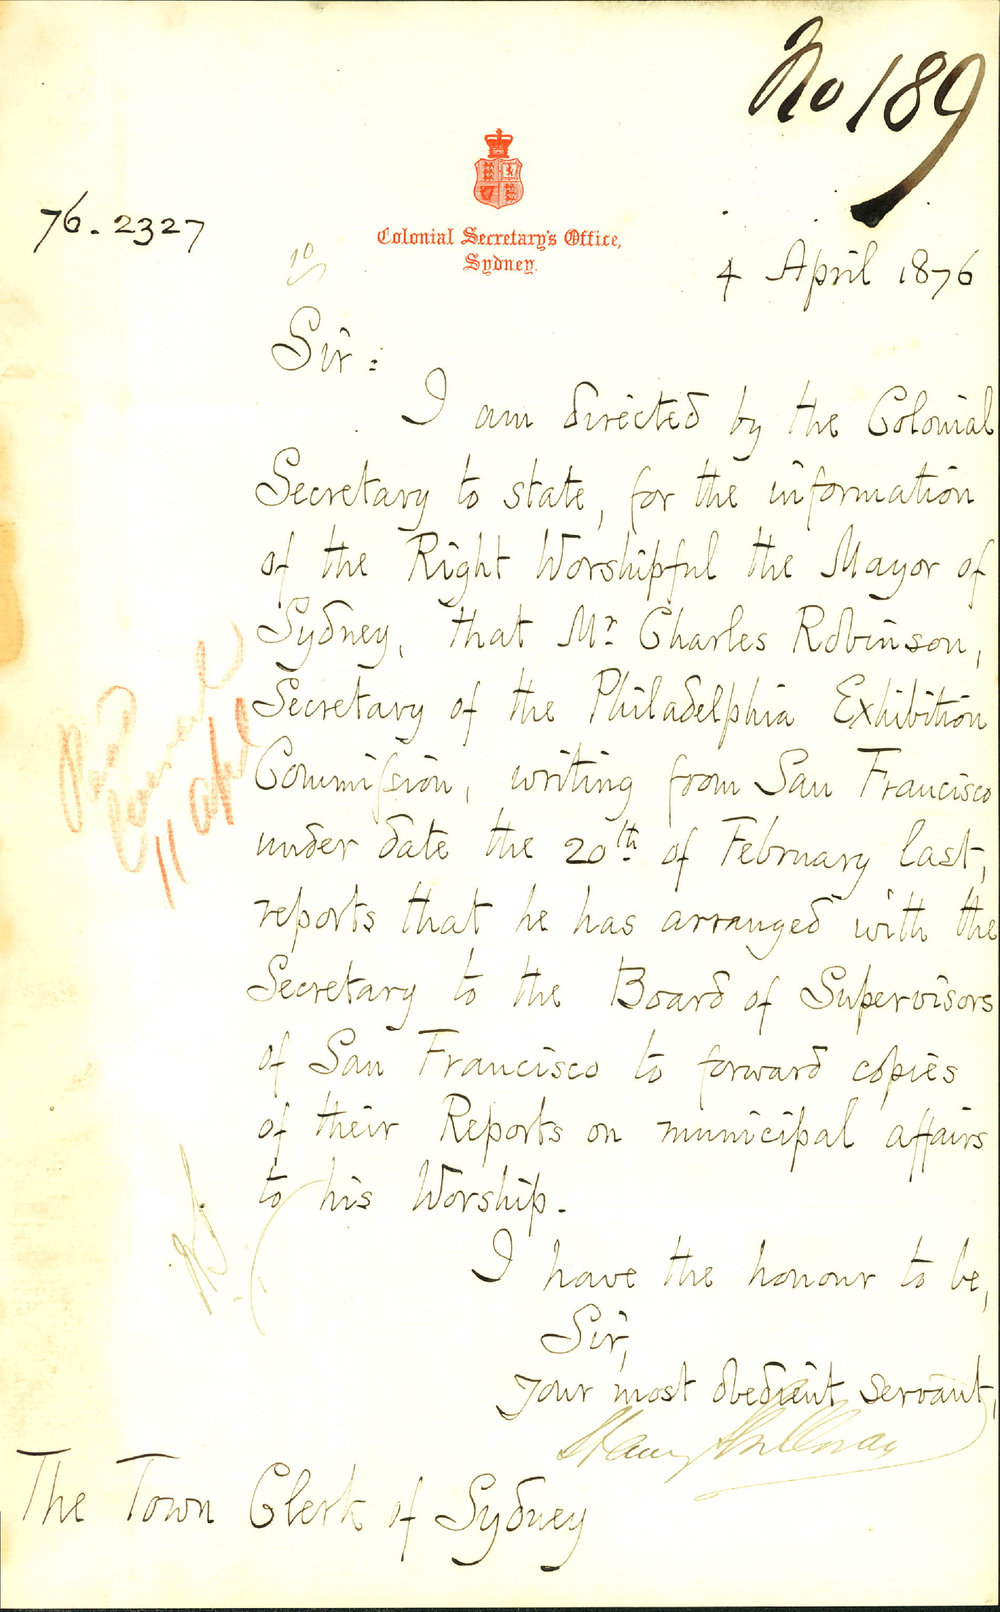 No 189
76.2327
Colonial Secretary's Office,
Sydney.
4 April 1876
Sir:
I am directed by the Colonial
Secretary to state, for the information
of the Right Worshipful the Mayor of
Sydney, that Mr. Charles Robinson,
Secretary of the Philadelphia Exhibition
Commission, writing from San Francisco
under date the 20th. of February last,
reports that he has arranged with the
Secretary to the Board of Supervisors
of San Francisco to forward copies
of their Reports on municipal affairs
to his Worship.
I have the honour to be,
Sir,
your most obedient servant,
The Town Clerk of Sydney
11 April